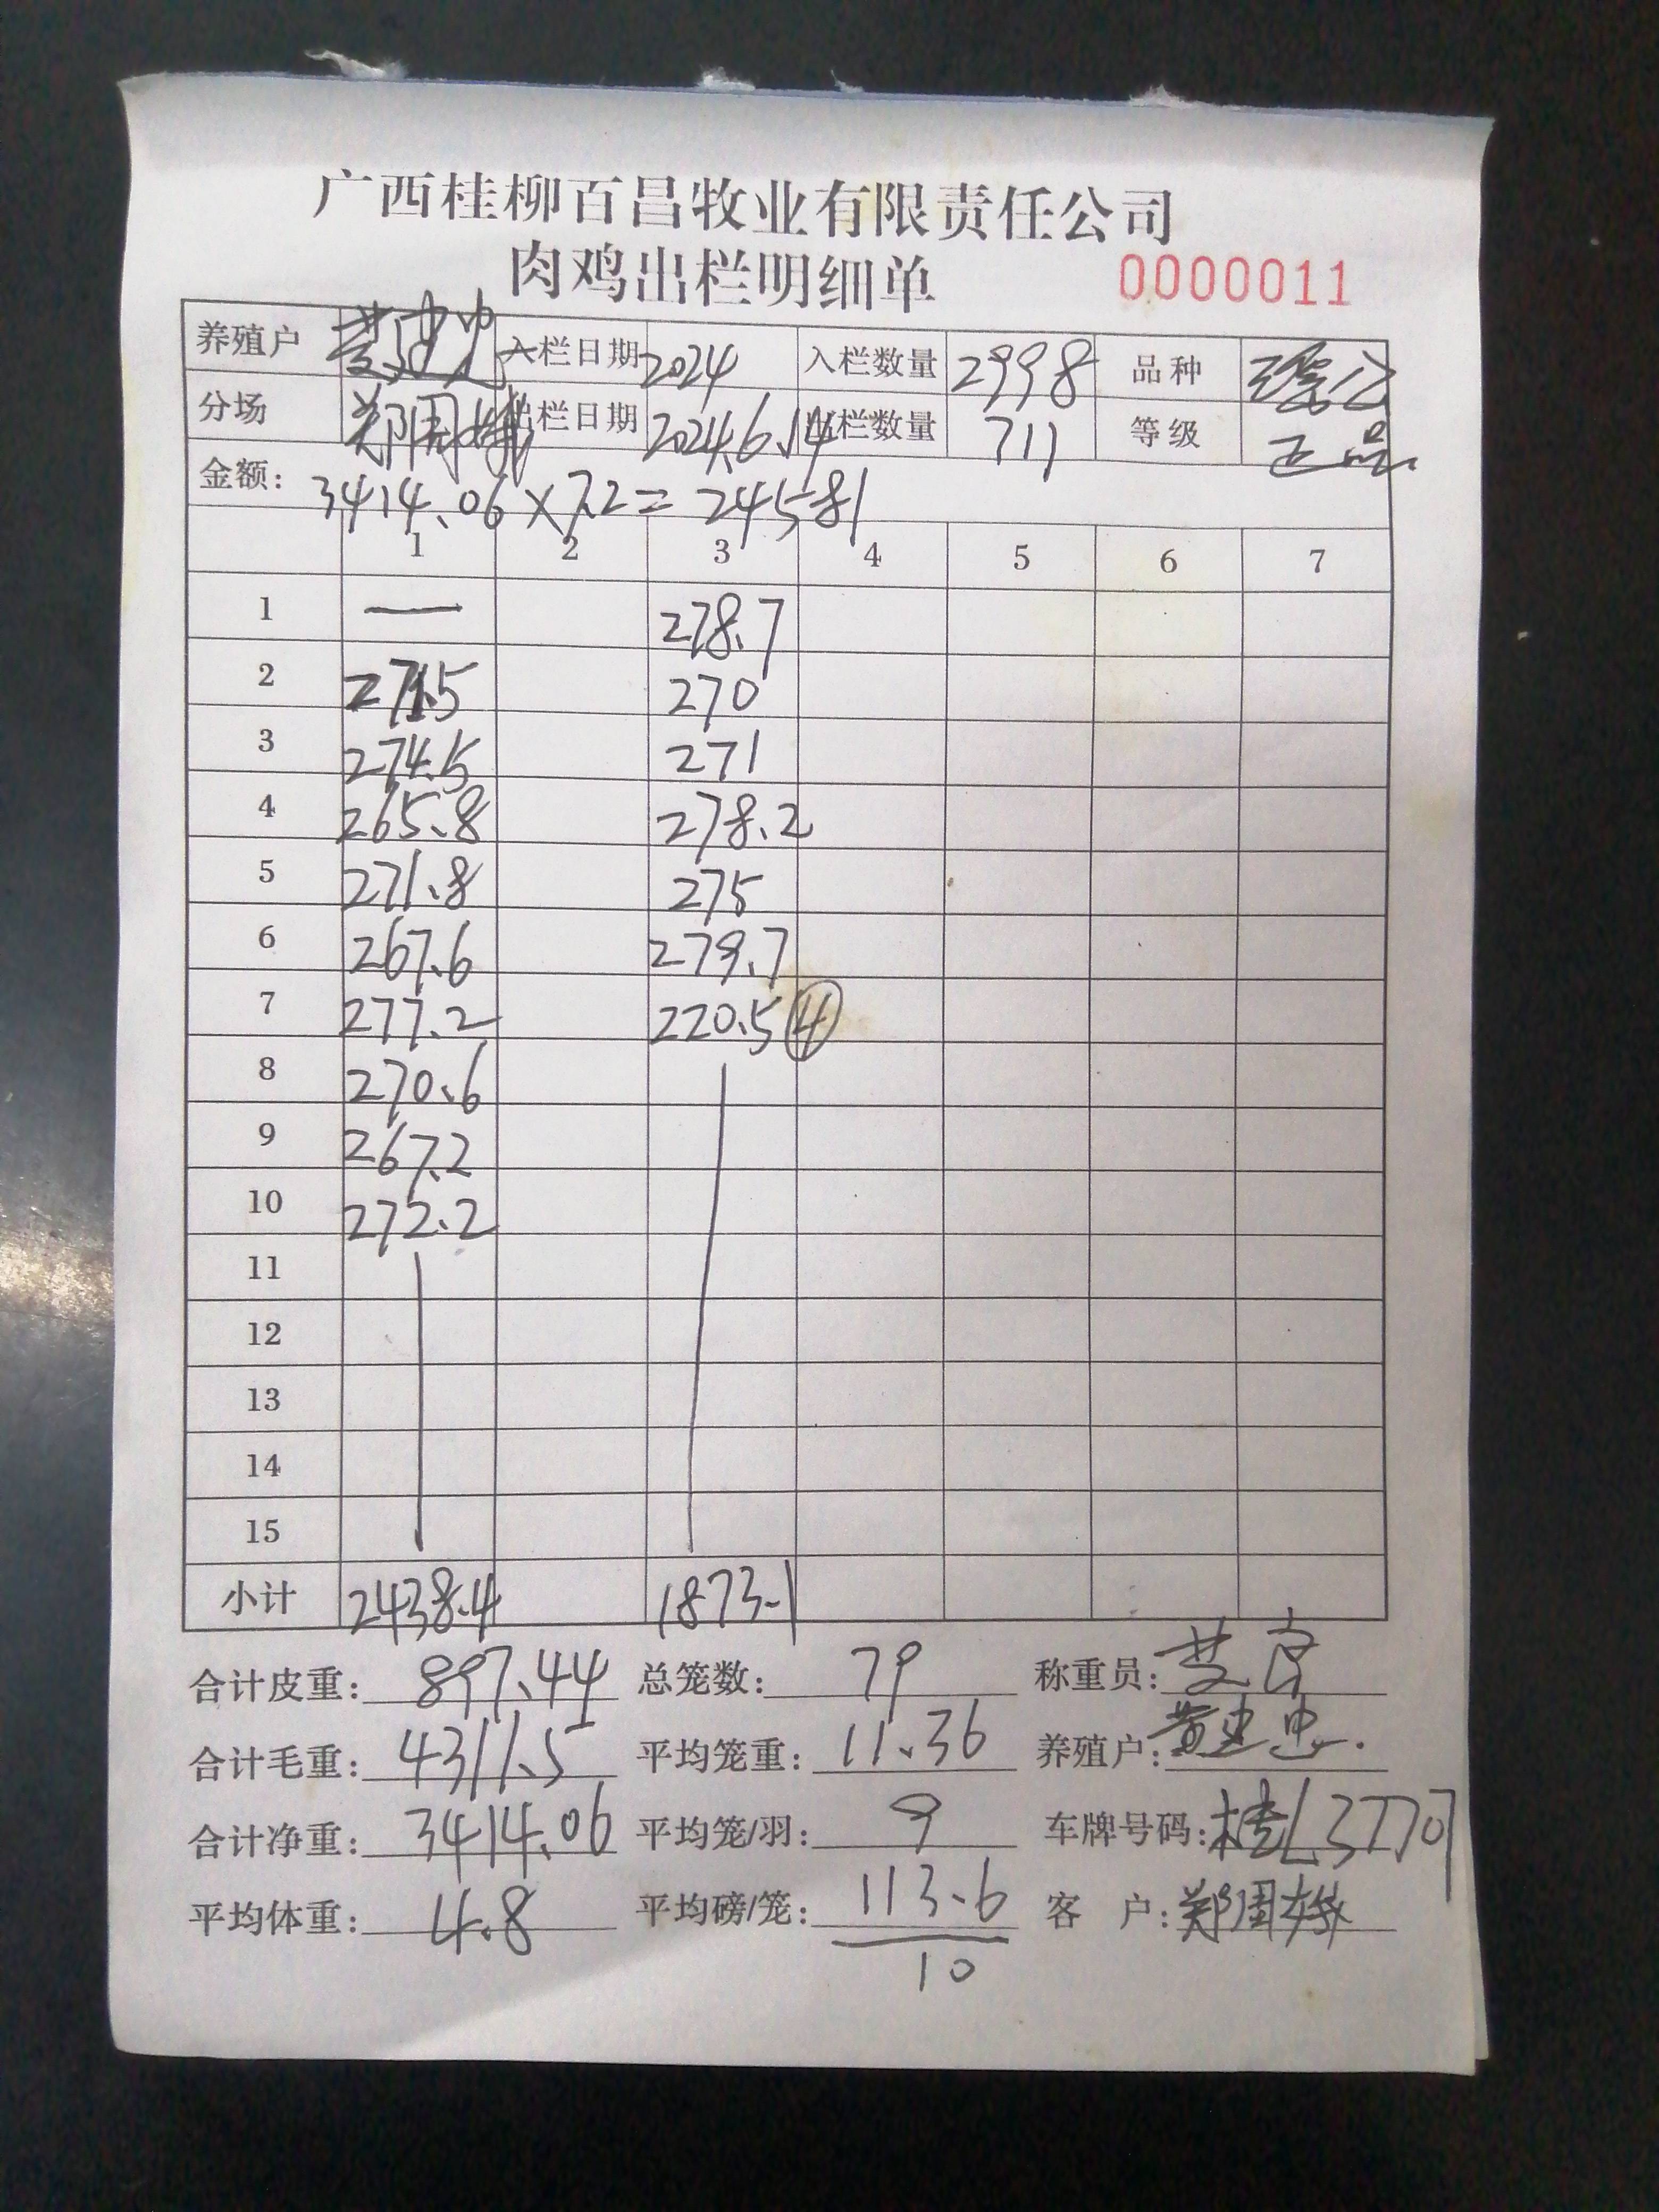 广西桂柳百昌牧业有限责任公司
肉鸡出栏明细单 0000011
养殖户 黄建忠 入栏日期 2024 入栏数量 2998 品种
分场 郑周娥 出栏日期 2024.6.14 出栏数量 711 等级 正品
金额: 3414.06×7.2=24581
1 2 3 4 5 6 7
1 — 278.7
2 271.5 270
3 274.5 271
4 265.8 278.2
5 271.8 275
6 267.6 279.7
7 277.2 220.5 ④
8 270.6
9 267.2
10 272.2
11
12
13
14
15
小计 2438.4 1873.1
合计皮重: 897.44 总笼数: 79 称重员:
合计毛重: 4311.5 平均笼重: 11.36 养殖户: 黄建忠.
合计净重: 3414.06 平均笼/羽: 9 车牌号码: 桂L37707
平均体重: 4.8 平均磅/笼: 113.6 客 户: 郑周娥
10